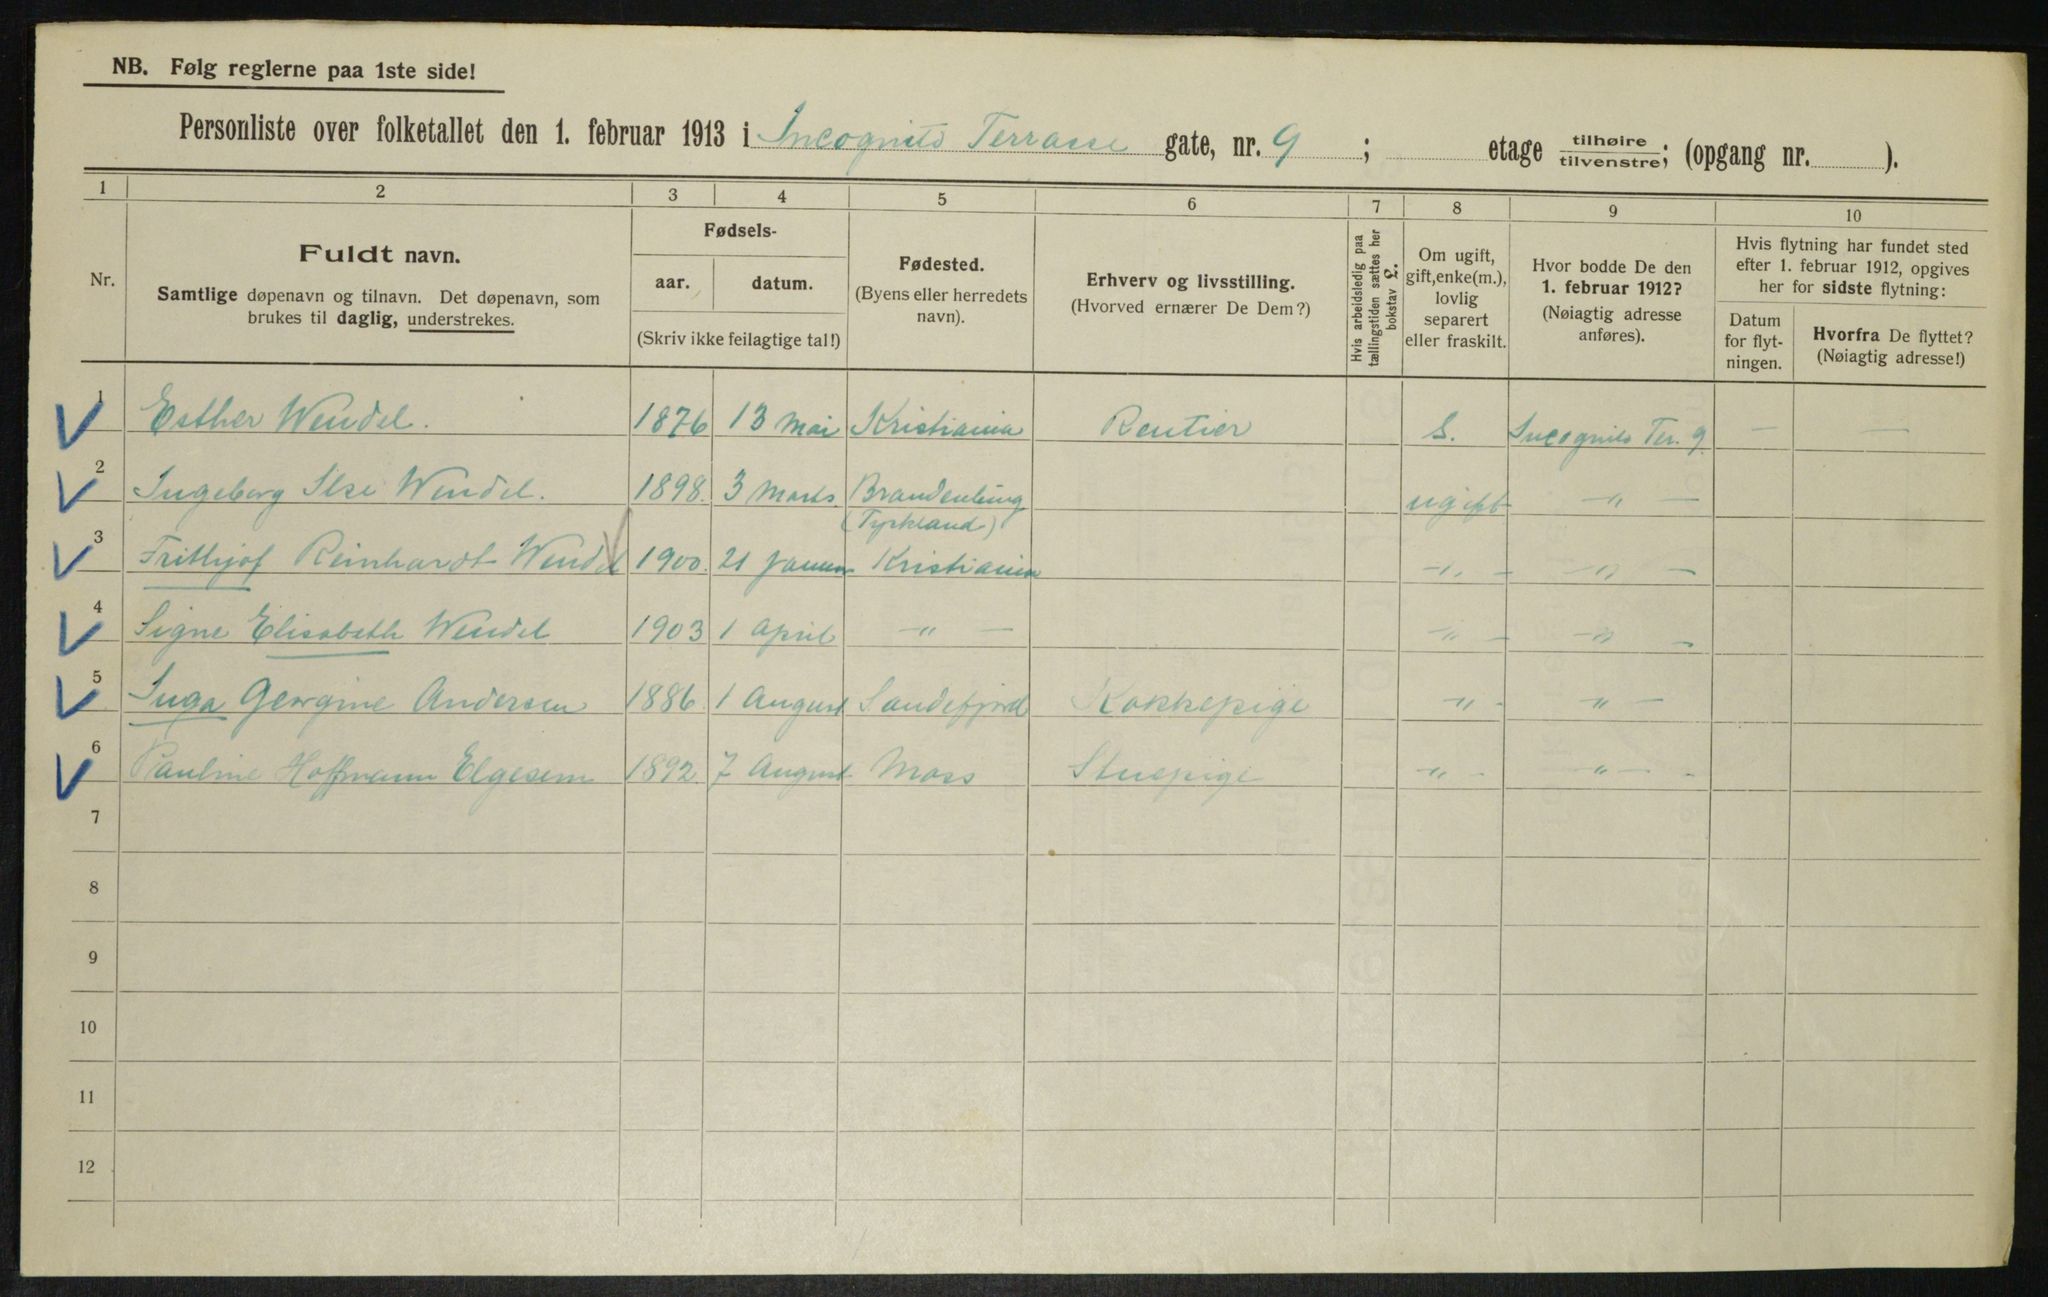 NB. Følg reglerne paa 1ste side!
Personliste over folketallet den 1. februar 1913 i Incognito Terrasse gate, nr. 9 ; etage tilhøire/tilvenstre; (opgang nr. ).
1 2 3 4 5 6 7 8 9 10
Nr.
Fuldt navn.
Samtlige døpenavn og tilnavn. Det døpenavn, som
brukes til daglig, understrekes.
Fødsels-
aar. datum.
(Skriv ikke feilagtige tal!)
Fødested.
(Byens eller herredets
navn).
Erhverv og livsstilling.
(Hvorved ernærer De Dem?)
Hvis arbeidsledig paa
tællingstiden sættes her
bokstav L.
Om ugift,
gift, enke(m.),
lovlig
separert
eller fraskilt.
Hvor bodde De den
1. februar 1912?
(Nøiagtig adresse
anføres).
Hvis flytning har fundet sted
efter 1. februar 1912, opgives
her for sidste flytning:
Datum
for flyt-
ningen.
Hvorfra De flyttet?
(Nøiagtig adresse!)
1 Esther Wendel. 1876 13 Mai Kristiania Rentier S. Incognito Ter. 9 — —
2 Ingeborg Ilse Wendel. 1898. 3 Marts. Brandenburg ugift —"—
(Tyskland)
3 Frithjof Reinhardt Wendel 1900. 21 Januar Kristiania —"— —"—
4 Signe Elisabeth Wendel 1903 1 April —"— —"— —"—
5 Inga Georgine Andersen 1886. 1 August Sandefjord Kokkepige —"— —"—
6 Pauline Hoffmann Elgesem 1892. 7 August Moss Stuepige —"— —"—
7
8
9
10
11
12